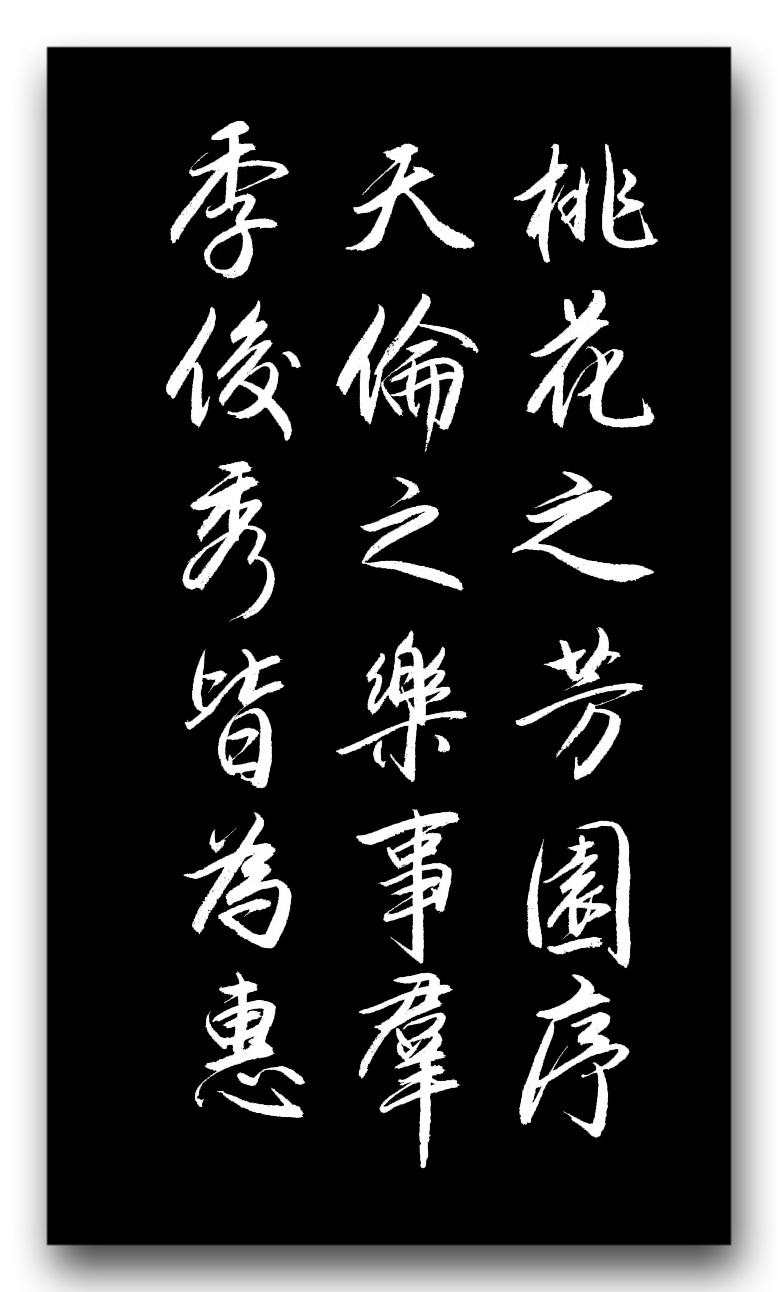 桃花之芳園序
天倫之樂事羣
季俊秀皆為惠